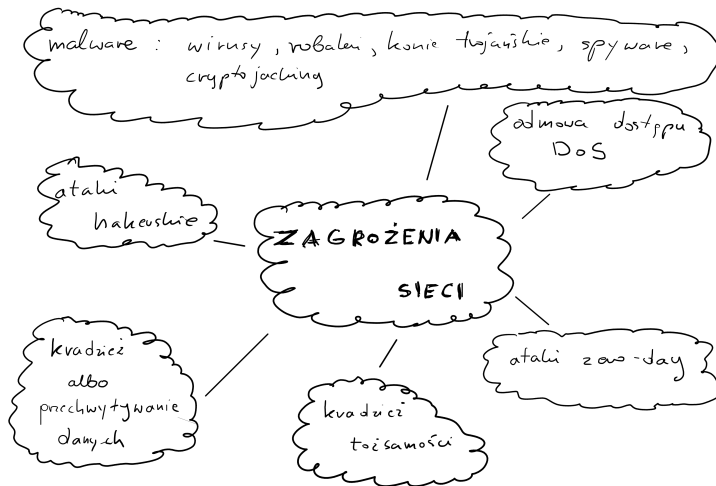 malware : wirusy, robaki, konie trojańskie, spyware,
cryptojacking
odmowa dostępu
DoS
ataki
hakerskie
ZAGROŻENIA
SIECI
kradzież
albo
przechwytywanie
danych
kradzież
tożsamości
ataki zero-day